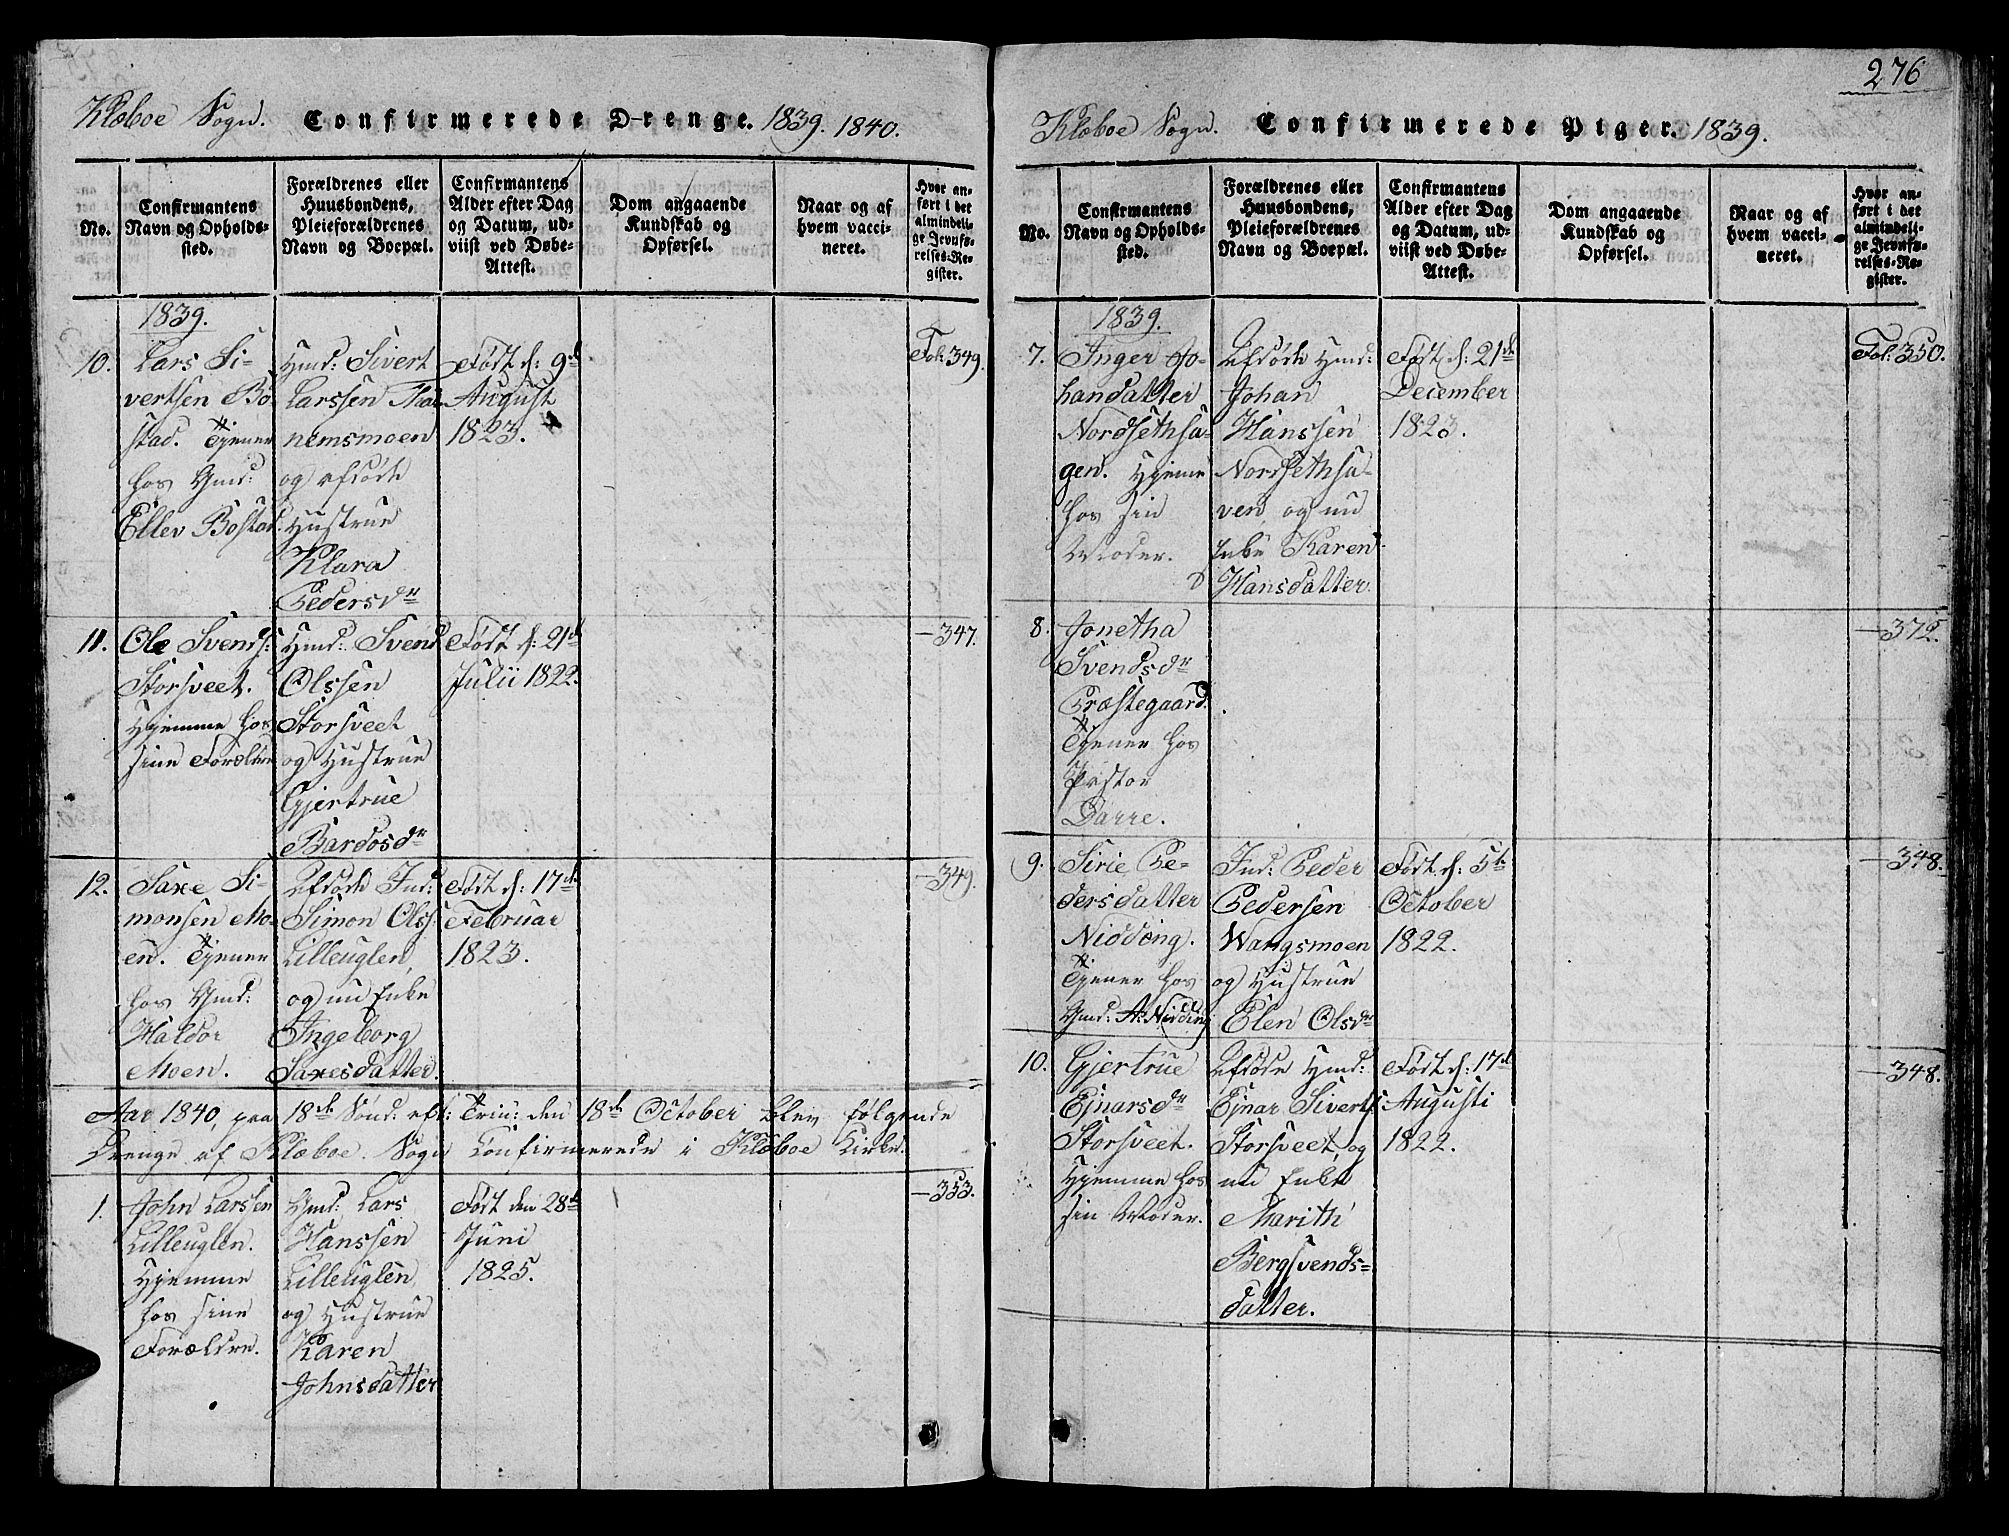 Klæboe Sogn. Confirmerede Drenge. 1839. 1840.
No.
Confirmantens
Navn og Opholds-
sted.
Forældrenes eller
Huusbondens,
Pleieforældrenes
Navn og Boepæl.
Confirmantens
Alder efter Dag
og Datum, ud-
viist ved Døbe-
Attest.
Dom angaaende
Kundskab og
Opførsel.
Naar og af
hvem vacci-
neret.
Hvor an-
ført i det
almindeli-
ge Jevnfø-
relses-Re-
gister.
1839.
10.
Lars Si-
vertsen Bo-
stad. Tjener
hos Gmd:
Ellev Bostad.
Hmd: Sivert
Larssen Tha-
nemsmoen
og afdøde
Hustrue
Klara
Pedersdr
Født d: 9de
August
1823.
Fol: 349.
11.
Ole Svends:
Storsveet.
Hjemme hos
sine Forældre
Hmd: Svend
Olssen
Storsveet
og Hustrue
Gjertrue
Bardosdr
Født d: 21de
Julii 1822.
—347.
12.
Saxe Si-
monsen Mo-
en. Tjener
hos Gmd:
Haldor
Moen.
Afdøde Ind:
Simon Olss:
Lilleuglen,
og nu Enke
Ingeborg
Saxesdatter.
Født d: 17de
Februar
1823.
—349.
Aar 1840, paa 18de Sønd: eft: Trin: den 18de October blev følgende
Drenge af Klæboe Sogn Confirmerede i Klæboe Kirke.
1.
John Larssen
Lilleuglen.
Hjemme
hos sine
Forældre.
Gmd: Lars
Hanssen
Lilleuglen
og Hustrue
Karen
Johnsdatter
Født den 28de
Juni
1825.
—353.
276
Klæboe Sogn. Confirmerede Piger. 1839.
No.
Confirmantens
Navn og Opholds-
sted.
Forældrenes eller
Huusbondens,
Pleieforældrenes
Navn og Boepæl.
Confirmantens
Alder efter Dag
og Datum, ud-
viist ved Døbe-
Attest.
Dom angaaende
Kundskab og
Opførsel.
Naar og af
hvem vacci-
neret.
Hvor an-
ført i det
almindeli-
ge Jevnfø-
relses-Re-
gister.
1839.
7.
Inger Jo-
handatter
Nordsethha-
gen. Hjeme
hos sin
Moder.
Afdøde Hmd:
Johan
Hanssen
Nordsethha-
ven, og nu
Enke Karen
Hansdatter.
Født d: 21de
December
1823.
Fol: 350.
8.
Jonetha
Svendsdr
Præstegaard.
Tjener hos
Pastor
Darre.
—372.
9.
Sirie Pe-
dersdatter
Nidding.
Tjener hos
Gmd: A: Nidding
Ind: Peder
Pedersen
Wangsmoen
og Hustrue
Elen Olsdr
Født d: 5te
October
1822.
—348.
10.
Gjertrue
Ejnarsdr
Storsveet.
Hjemme hos
sin Moder.
Afdøde Hmd:
Ejnar Siverts:
Storsveet, og
nu Enke
Marith
Bergsvends-
datter.
Født d: 17de
Augusti
1822.
—348.